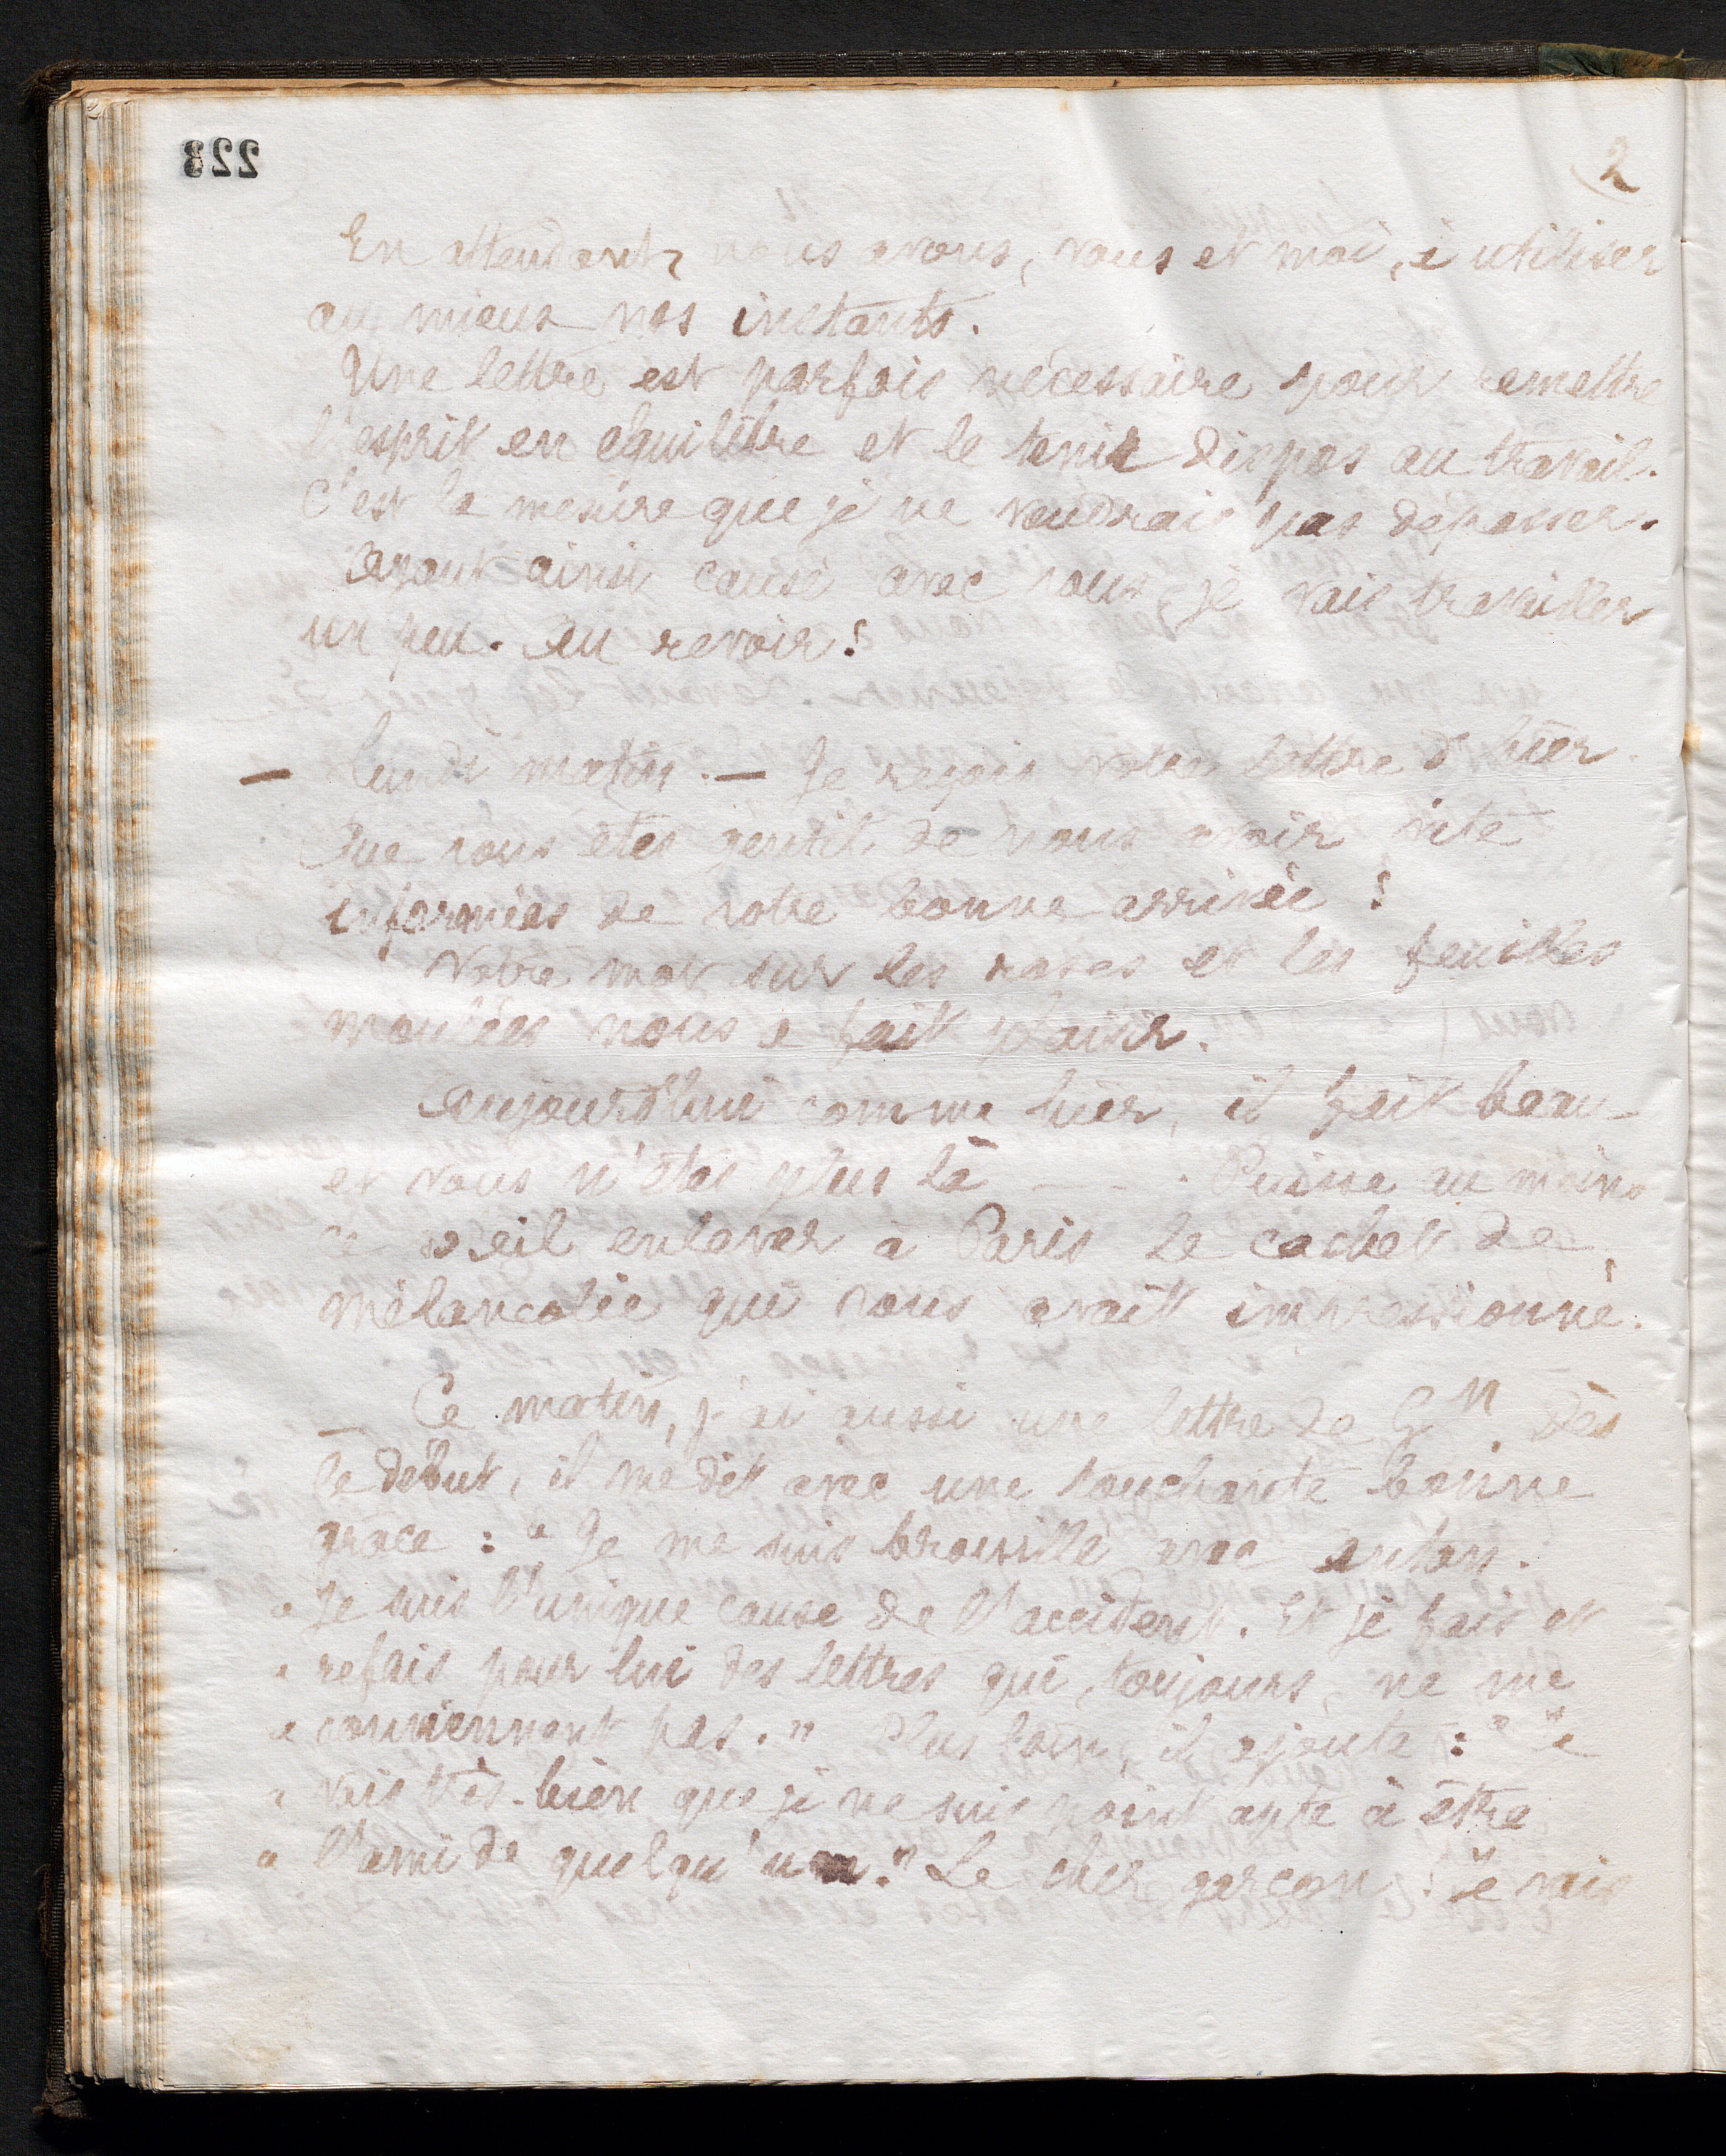 223
2
En attendant, nous avons, vous et moi, à utiliser
au mieux nos instants.
Une lettre est parfois nécessaire pour remettre
l'esprit en équilibre et le tenir dispos au travail.
C'est la mesure que je ne voudrais pas dépasser.
Ayant ainsi causé avec vous, je vais travailler
un peu. Au revoir!
— Lundi matin. — Je reçois votre lettre d'hier.
Que vous êtes gentil de nous avoir vite
informées de votre bonne arrivée !
Votre mot sur les roses et les feuilles
moulées nous a fait plaisir.
Aujourd'hui comme hier, il fait beau
et vous n'êtes plus là — - . Puisse au moins
ce soleil enlever à Paris le cachet de
mélancolie qui vous avait impressionné.
— Ce matin, j'ai aussi une lettre de Gⁿ. Dès
le début, il me dit avec une touchante bonne
grâce : "Je me suis brouillé avec Anton.
" Je suis l'unique cause de l'accident. Et je fais et
" refais pour lui des lettres qui, toujours, ne me
" conviennent pas." Plus loin, il ajoute : "Je
" vois très-bien que je ne suis point apte à être
" l'ami de quelqu'un." Le cher garçon ! Je vais